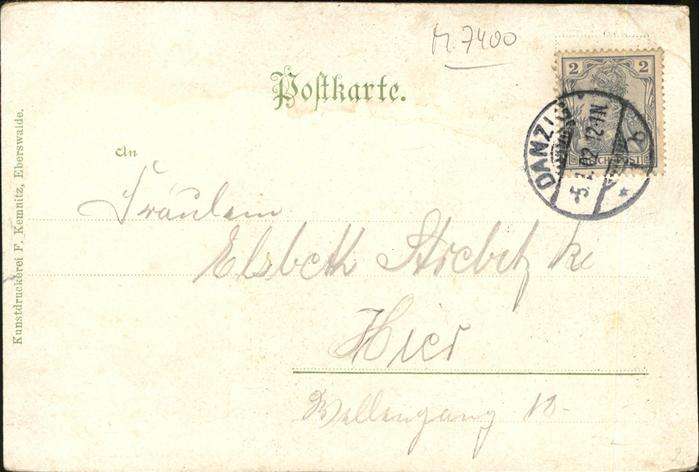 M. 7400
Postkarte.
2 2
REICHSPOST
DANZIG
5.2.02 12-1N.
An
Fräulein
Elsbeth Strebitzke
Hier
12
Kunstdruckerei F. Kemnitz, Eberswalde.